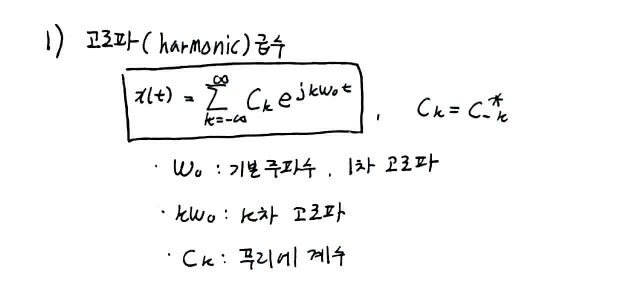 1) 고조파(harmonic)급수
x(t) = ∑_{k=-∞}^{∞} C_k e^{jkω₀t} , C_k = C_{-k}^*
· ω₀ : 기본주파수, 1차 고조파
· kω₀ : k차 고조파
· C_k : 푸리에 계수